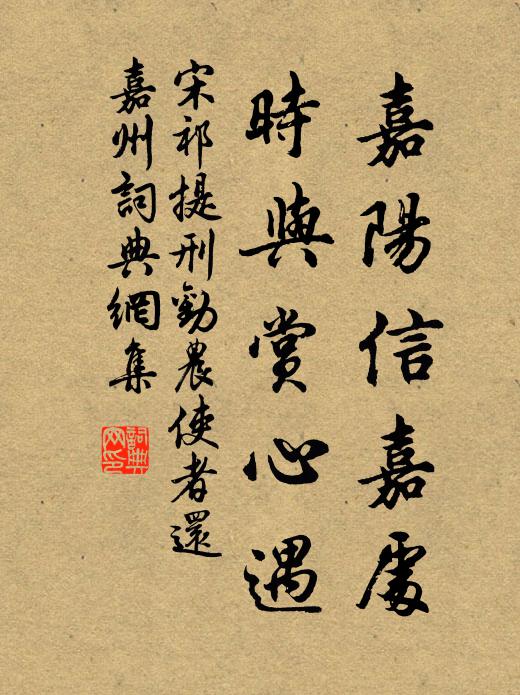 嘉陽信嘉處
時與賞心遇
宋祁提刑勸農使者還
嘉州詞典網集
詞典網印